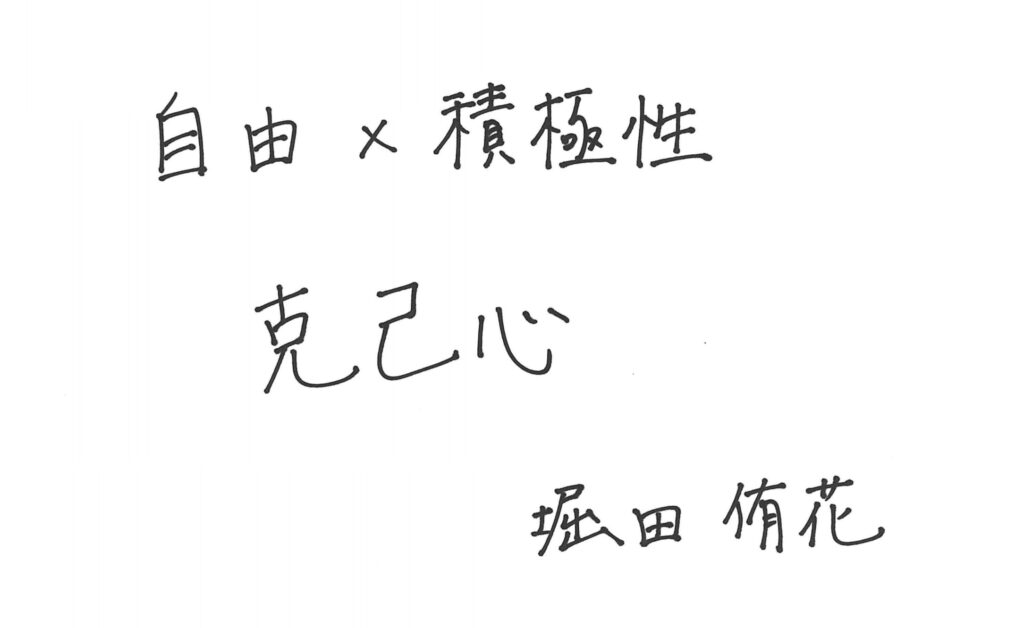 自由×積極性
克己心
堀田 侑花